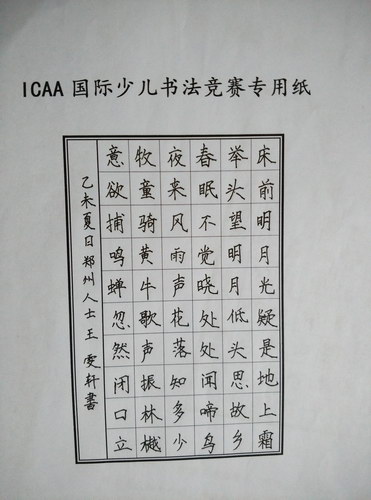 ICAA 国际少儿书法竞赛专用纸
床前明月光疑是地上霜
举头望明月低头思故乡
春眠不觉晓处处闻啼鸟
夜来风雨声花落知多少
牧童骑黄牛歌声振林樾
意欲捕鸣蝉忽然闭口立
乙未夏日郑州人士王雯轩書